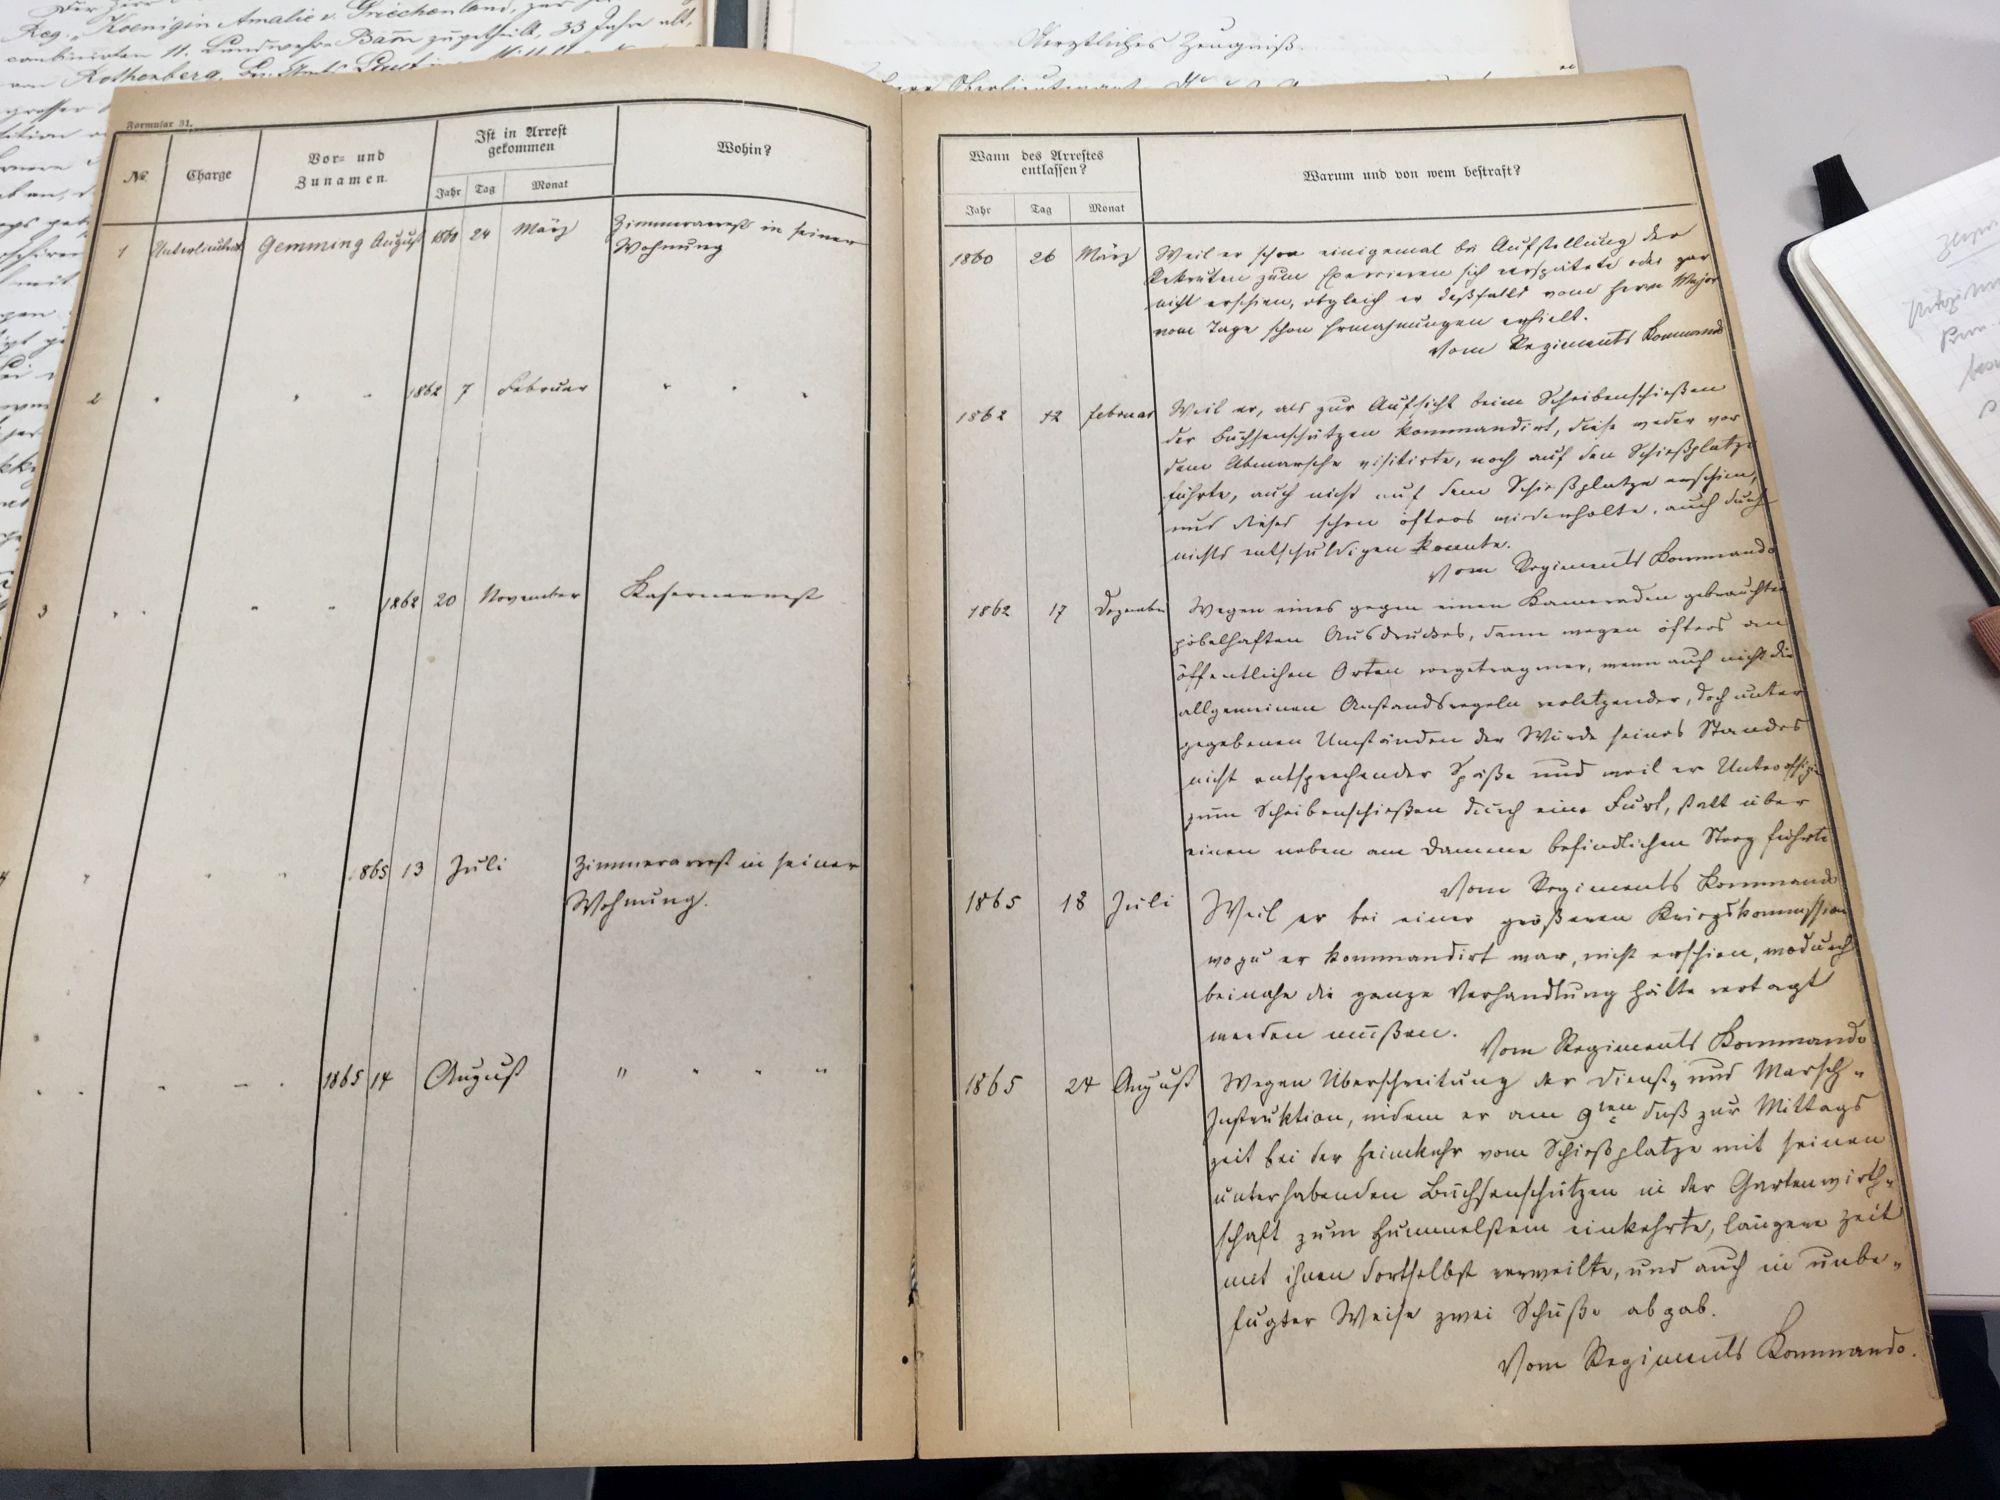 Reg. "Koenigin Amalie v. Griechenland, zur
combinirten 11. Landwehr Baon zugetheilt, 33 Jahre alt,
von Rothenberg,
grosser
Aerztliches Zeugniß.
Herr Oberlieutenant
Formular 31.
No. Charge Vor- und Zunamen. Ist in Arrest gekommen Wohin?
Jahr Tag Monat
1 Unterlieutnt Gemming August 1860 24 März Zimmerarrest in seiner
Wohnung
2 " " " 1862 7 Februar " " "
3 " " " 1862 20 November Kasernarrest
4 " " " 1865 13 Juli Zimmerarrest in seiner
Wohnung.
" " " " " 1865 14 August " " " "
Wann des Arrestes entlassen? Warum und von wem bestraft?
Jahr Tag Monat
1860 26 März Weil er schon einigemal bei Aufstellung der
Rekruten zum Exerzieren sich verspätete oder gar
nicht erschien, obgleich er deßfalls vom Herrn Major
vom Tage schon Ermahnungen erhielt.
Vom Regiments Kommando
1862 12 Februar Weil er, als zur Aufsicht beim Scheibenschießen
der Büchsenschützen kommandirt, diese weder vor
dem Abmarsche visitirte, noch auf den Schießplatz
führte, auch nicht auf dem Schießplatze erschien,
und dieses schon öfters wiederholte, auch durch
nichts entschuldigen konnte.
Vom Regiments Kommando
1862 17 Dezember Wegen eines gegen einen Kameraden gebrauchten
pöbelhaften Ausdruckes, dann wegen öfters an
öffentlichen Orten vorgetragener, wenn auch nicht die
allgemeinen Anstandsregeln verletzender, doch unter
gegebenen Umständen der Würde seines Standes
nicht entsprechender Späße und weil er Unteroffizie
zum Scheibenschießen durch eine Furt, statt über
einen neben am Damme befindlichen Steg führte
Vom Regiments Kommando
1865 18 Juli Weil er bei einer größeren Kriegskommission
wozu er kommandirt war, nicht erschien, wodurch
beinahe die ganze Verhandlung hätte vertagt
werden müßen.
Vom Regiments Kommando
1865 24 August Wegen Überschreitung der Dienst- und Marsch-
Instruktion, indem er am 9ten dß zur Mittags
zeit bei der Heimkehr vom Schießplatze mit seinen
unterhabenden Büchsenschützen in der Gartenwirth-
schaft zum Hummelstein einkehrte, längere Zeit
mit ihnen dortselbst verweilte, und auch in unbe-
fugter Weise zwei Schüße abgab.
Vom Regiments Kommando.